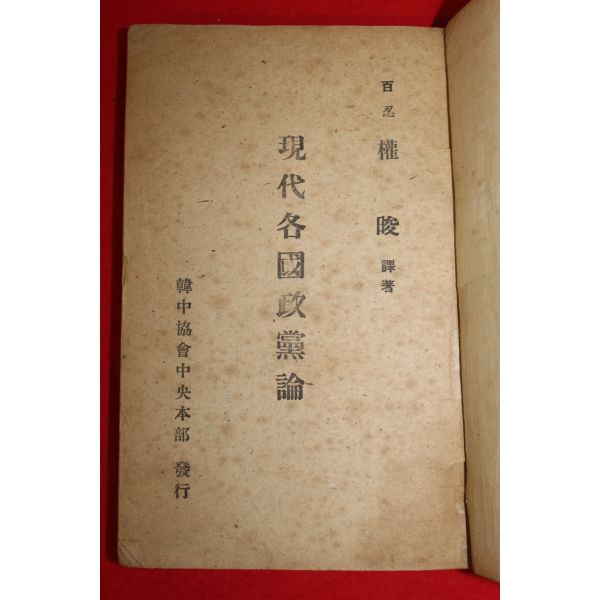 百忍 權晙 譯著
現代各國政黨論
韓中協會中央本部 發行